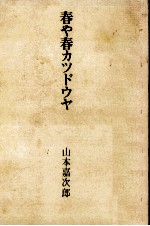 春や春カツドウヤ
山本嘉次郎